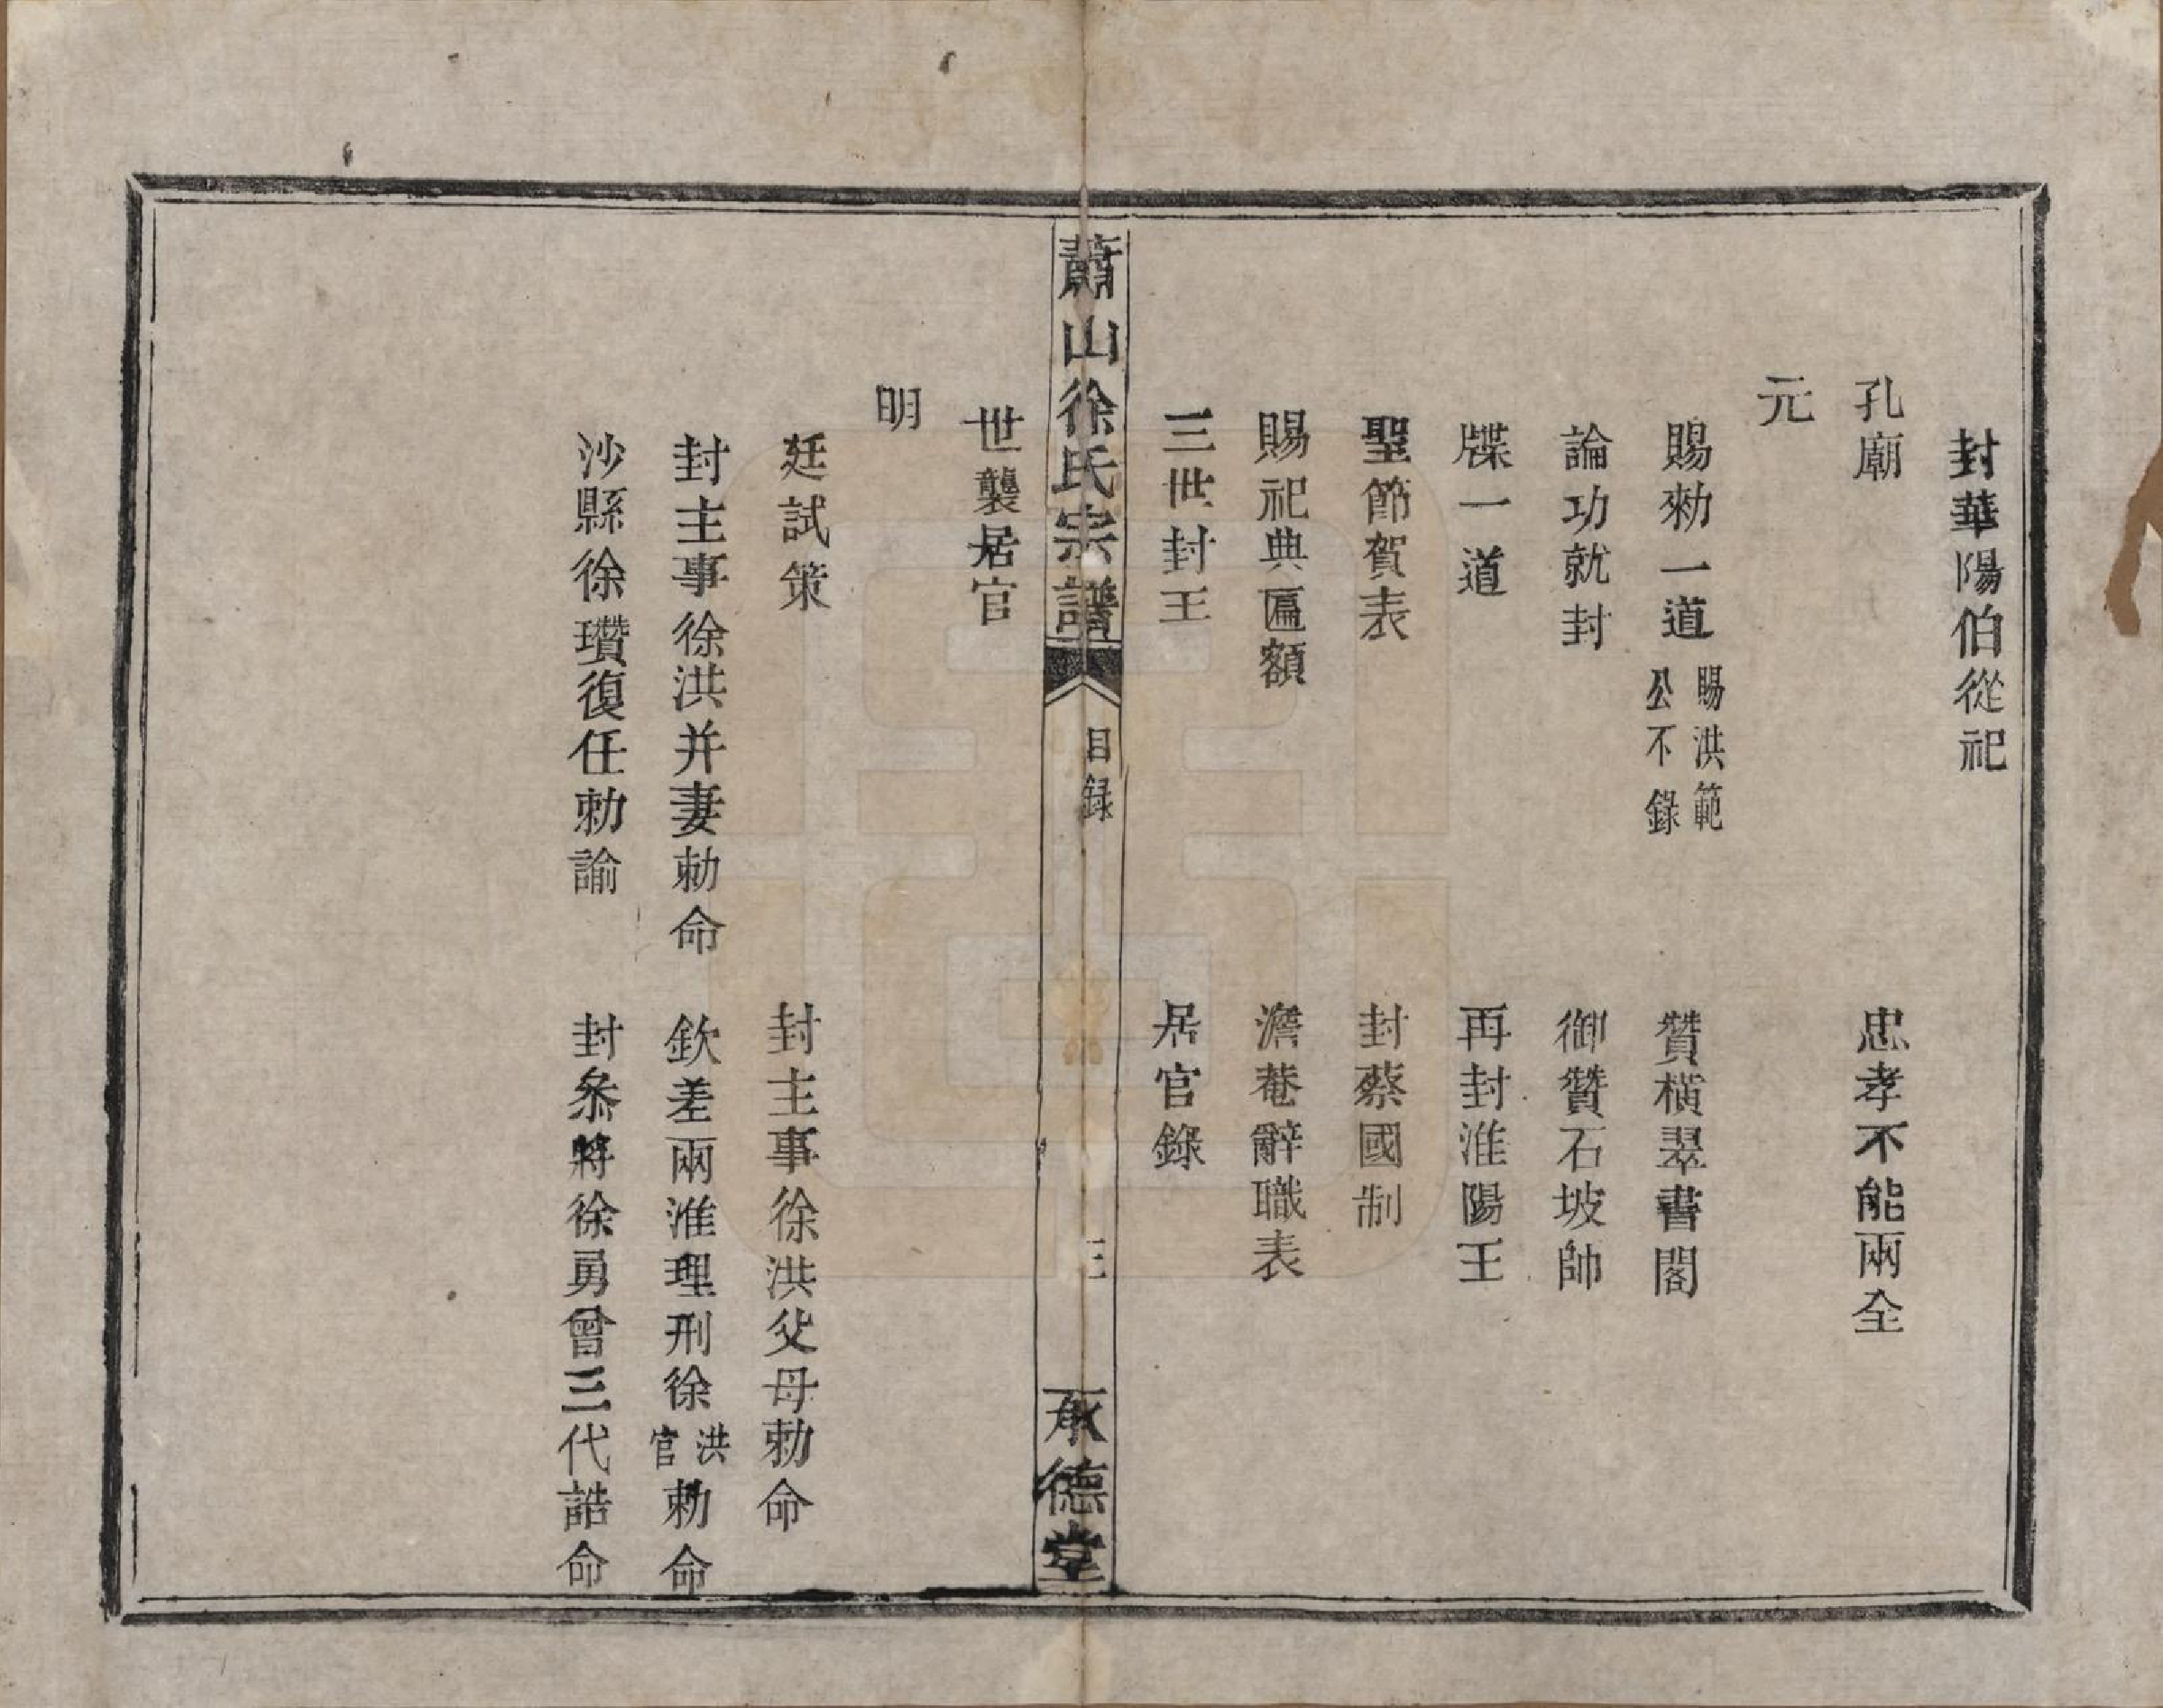 封華陽伯從祀
孔廟　忠孝不能兩全
元
賜勑一道賜洪範公不錄　贊橫翠書閣
論功就封　御贊石坡帥
牒一道　再封淮陽王
聖節賀表　封蔡國制
賜祀典匾額　澹菴辭職表
三世封王　居官錄
蕭山徐氏宗譜　目錄　三　承德堂
世襲居官
明
廷試策　封主事徐洪父母勅命
封主事徐洪并妻勅命　欽差兩淮理刑徐洪官勅命
沙縣徐瓚復任勅諭　封叅將徐勇曾三代誥命